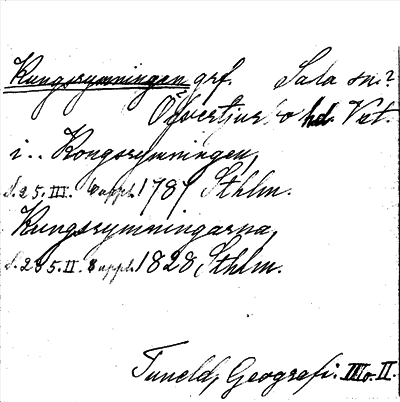 Kungsrymningen grf. Sala sn?
Öfvertjurbo hd. Vst.
i.. Kongsrymningen,
s. 25. III. 6 uppl. 1787 Sthlm.
Kungsrymningarna,
s. 285. II. 8 uppl. 1828 Sthlm.
Tuneld, Geografi. III o. II.